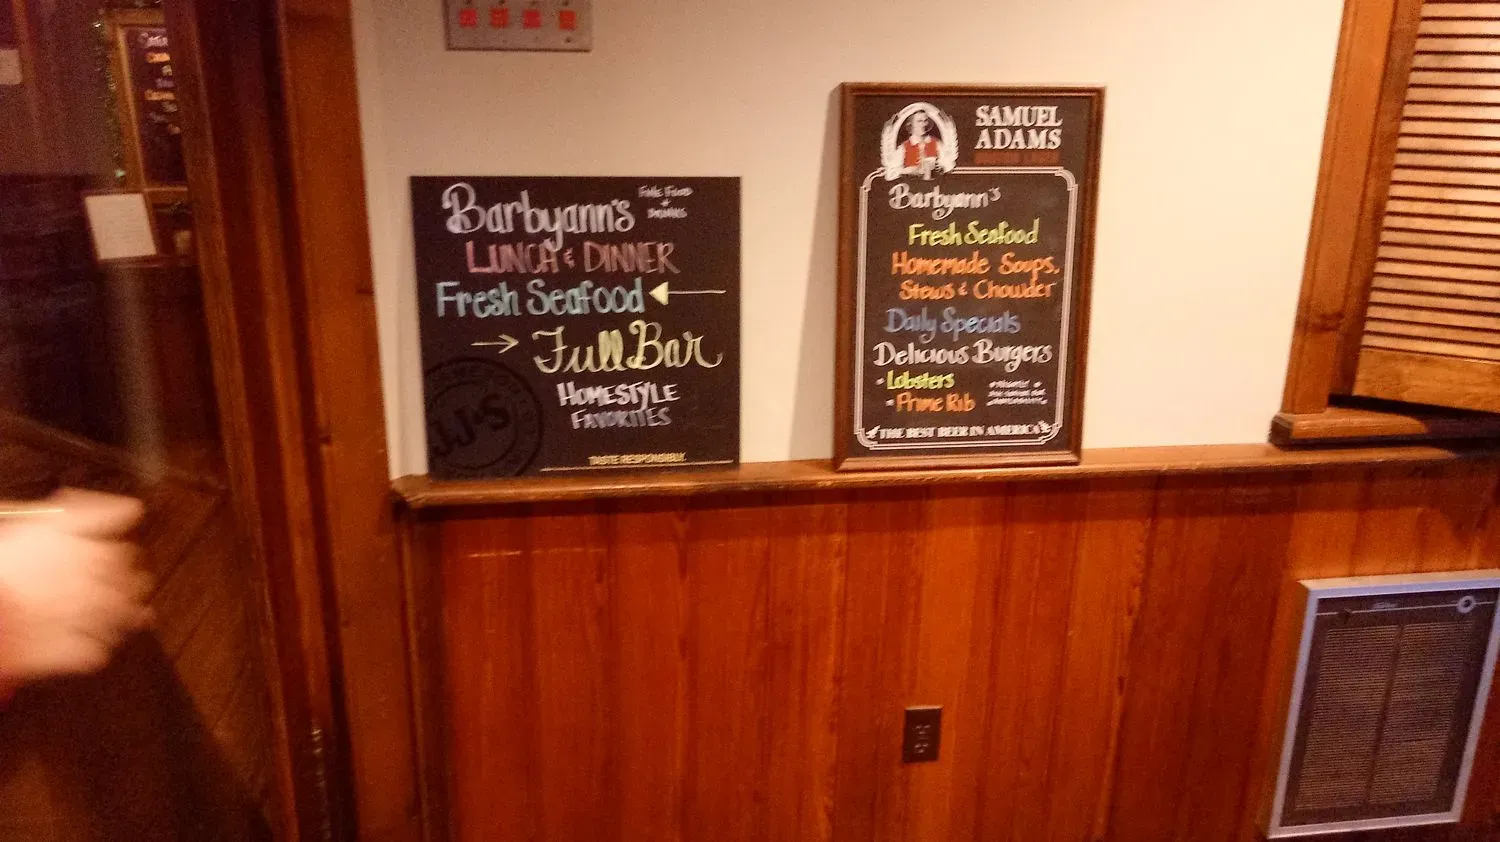 Barbyann's
Fine Food
+
Drinks
LUNCH & DINNER
Fresh Seafood
Full Bar
HOMESTYLE
FAVORITES
JJ's
TASTE RESPONSIBLY.
SAMUEL
ADAMS
Barbyann's
Fresh Seafood
Homemade Soups,
Stews & Chowder
Daily Specials
Delicious Burgers
- Lobsters
- Prime Rib
THE BEST BEER IN AMERICA